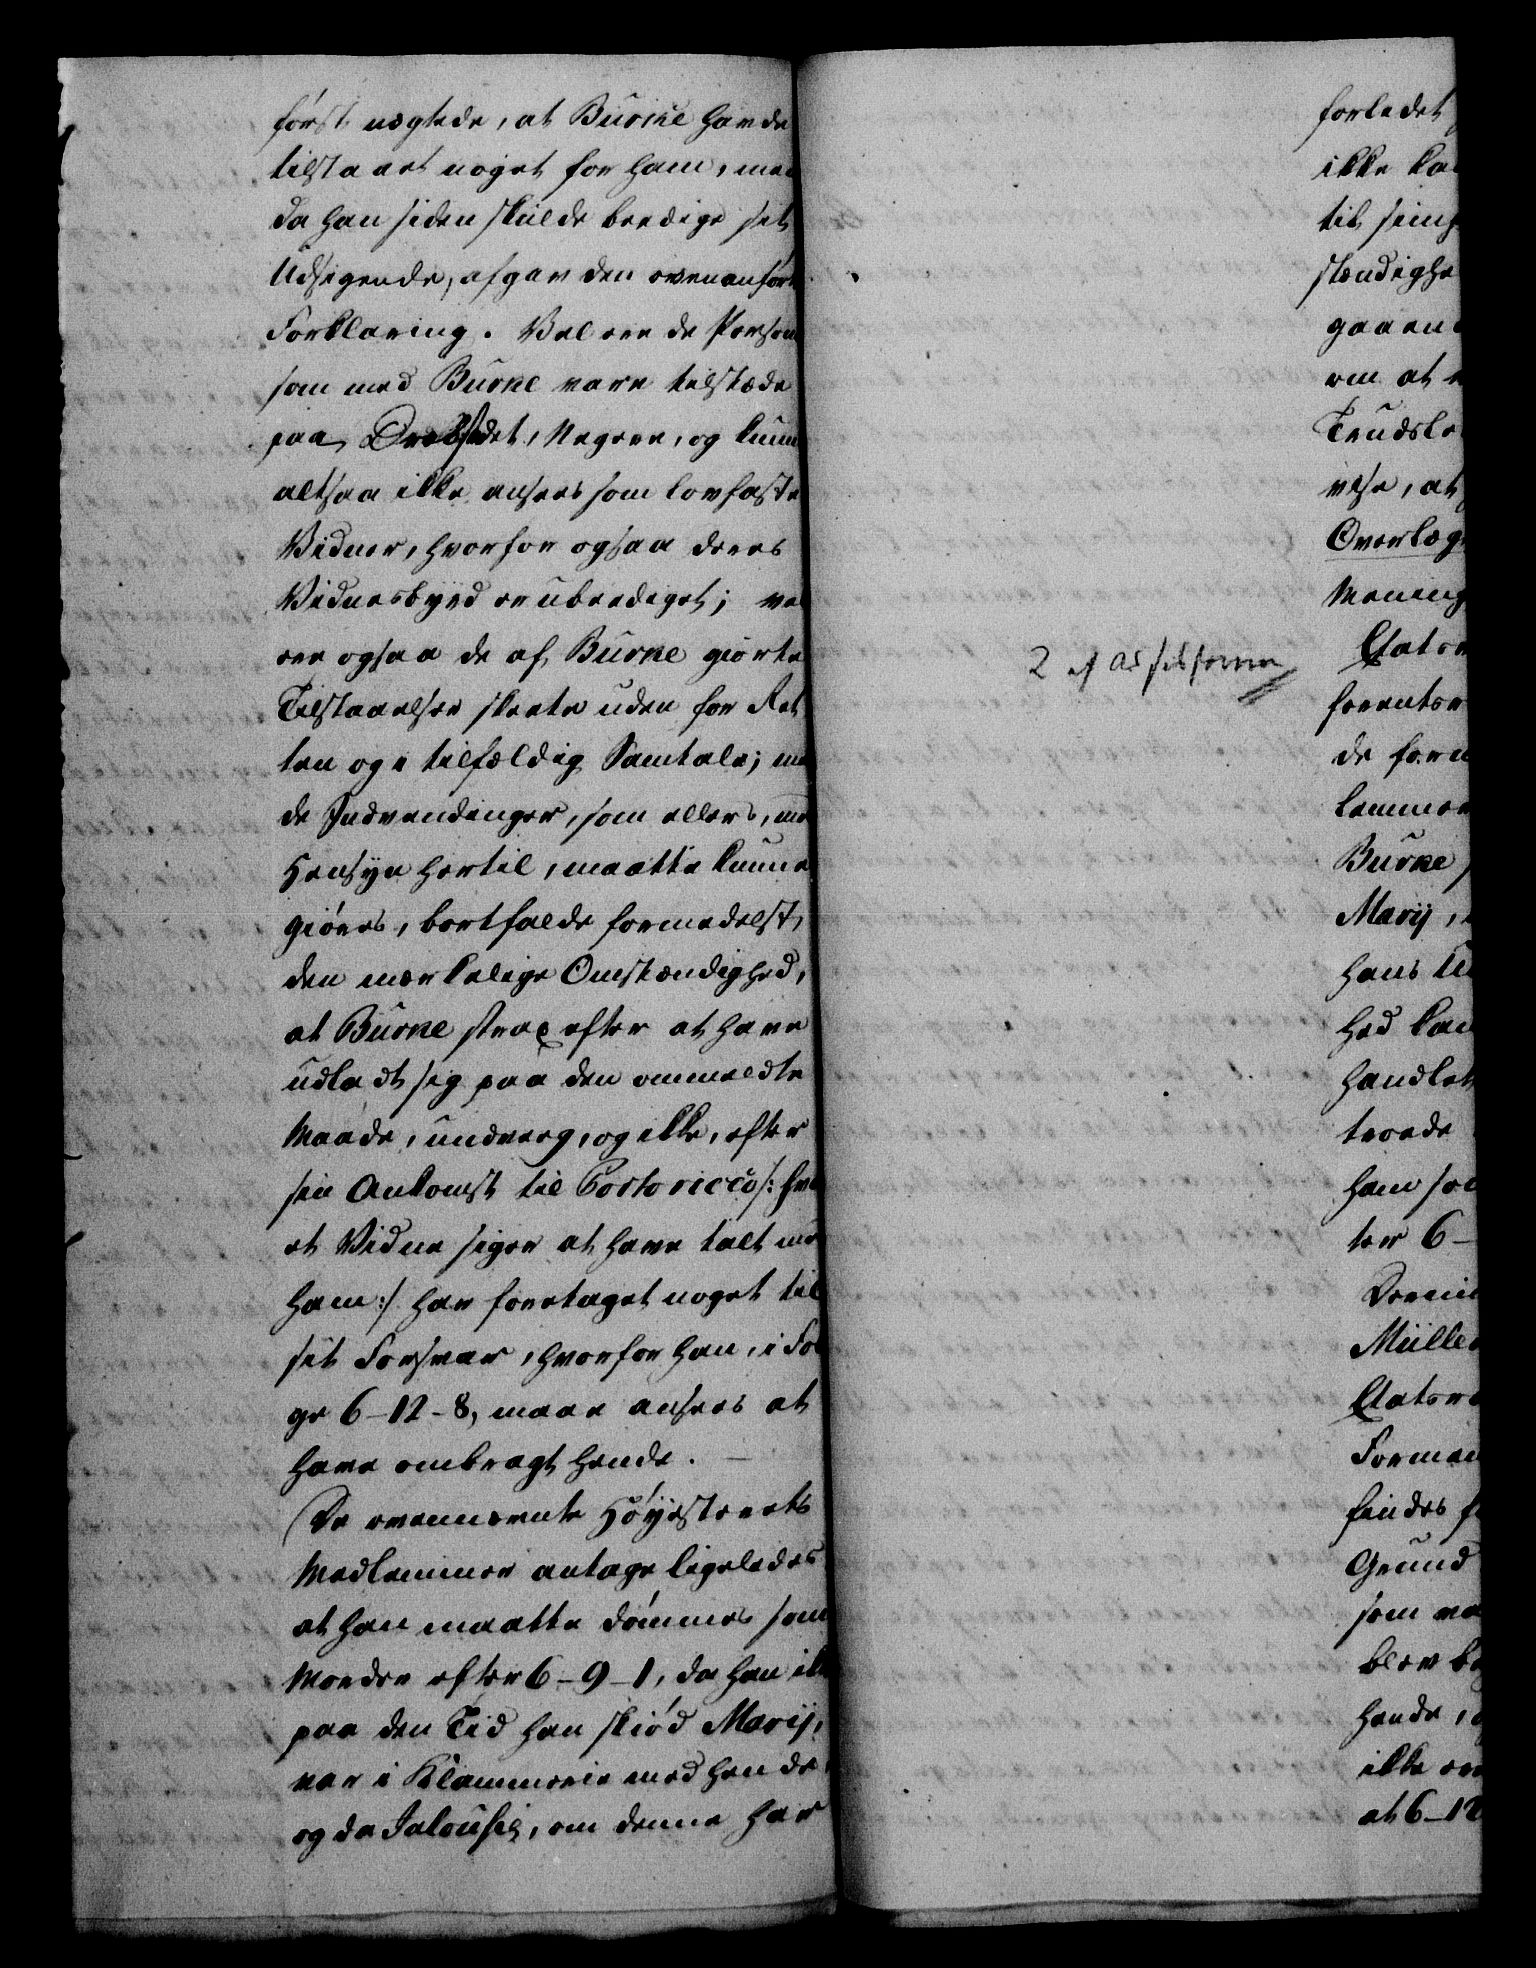 først nægtede, at Burke havde
tilstaaet noget for ham, men
da han siden skulde beedige sit
Udsigende, afgav den ovenanført
Forklaring. Vel ere de Person
som med Burke vare tilstæde
paa Drabstedet, Negere, og kunn
altsaa ikke ansees som lovfaste
Vidner, hvorfor ogsaa deres
Vidnesbyrd er ubeediget; vel
ere ogsaa de af Burke giorte
Tilstaaelser skeete uden for Ret
ten og i tilfældig Samtale; men
de Indvendinger, som ellers, med
Hensyn hertil, maatte kunne
giøres, bortfalde formedelst
den mærkelige Omstændighed,
at Burke strax efter at have
udladt sig paa den ommeldte
Maade, undveeg, og ikke, efter
sin Ankomst til Portoricco /: hvo
et Vidne siger at have talt med
ham :/ har foretaget noget til
sit Forsvar, hvorfor han, i Føl
ge 6-12-8, maae ansees at
have ombragt hende. —
De ovennævnte Høyesterets
Medlemmer antage ligeledes
at han maatte dømmes som
Morder efter 6-9-1, da han ikk
paa den Tid han skiød Mary,
var i Klammerie med hende,
og da Jalousie, om denne har
2 et
forledet
ikke kan
til sing
stændighe
gaaen
om at
Trudsle
vise, at
Overlæg
Mening
Etatsr
foreenter
de forn
lemmer
Burke
Mary,
hans Til
hed kan
handlet
troede
ham som
ter 6-
Dernin
Müller
Etatsra
Formen
findes
Grund
som va
blev be
hende,
ikke er
at 6-12